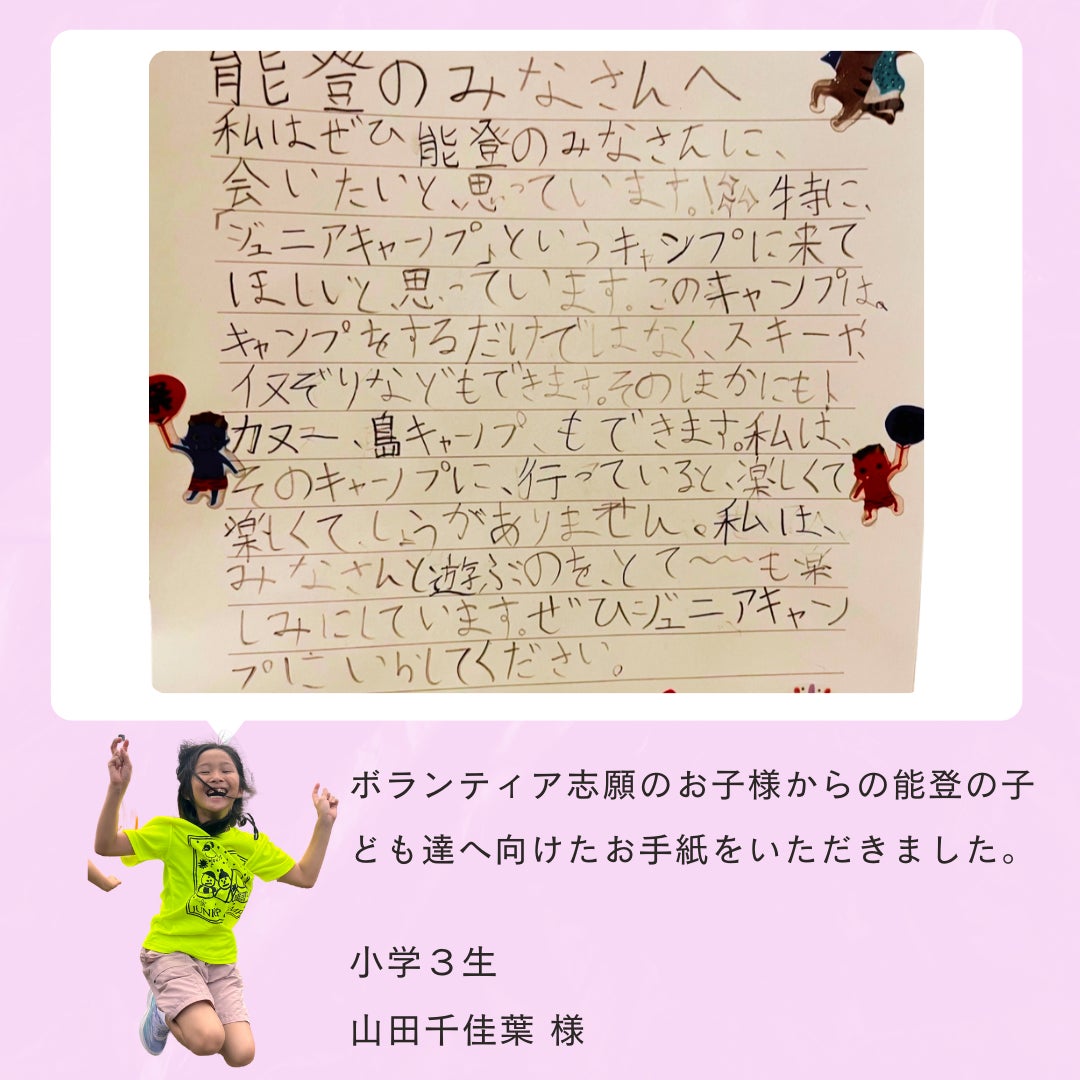 能登のみなさんへ
私はぜひ能登のみなさんに、
会いたいと、思っています。!特に、
「ジュニアキャンプ」というキャンプに来て
ほしいと、思っています。このキャンプは、
キャンプをするだけではなく、スキーや、
イヌぞりなどもできます。そのほかにも!
カヌー、島キャンプ、もできます。私は、
そのキャンプに、行っていると、楽しくて
楽しくて、しょうがありません。私は、
みなさんと遊ぶのを、とて〜〜も楽
しみにしています。ぜひジュニアキャン
プにいらしてください。
ボランティア志願のお子様からの能登の子
ども達へ向けたお手紙をいただきました。
小学３生
山田千佳葉 様